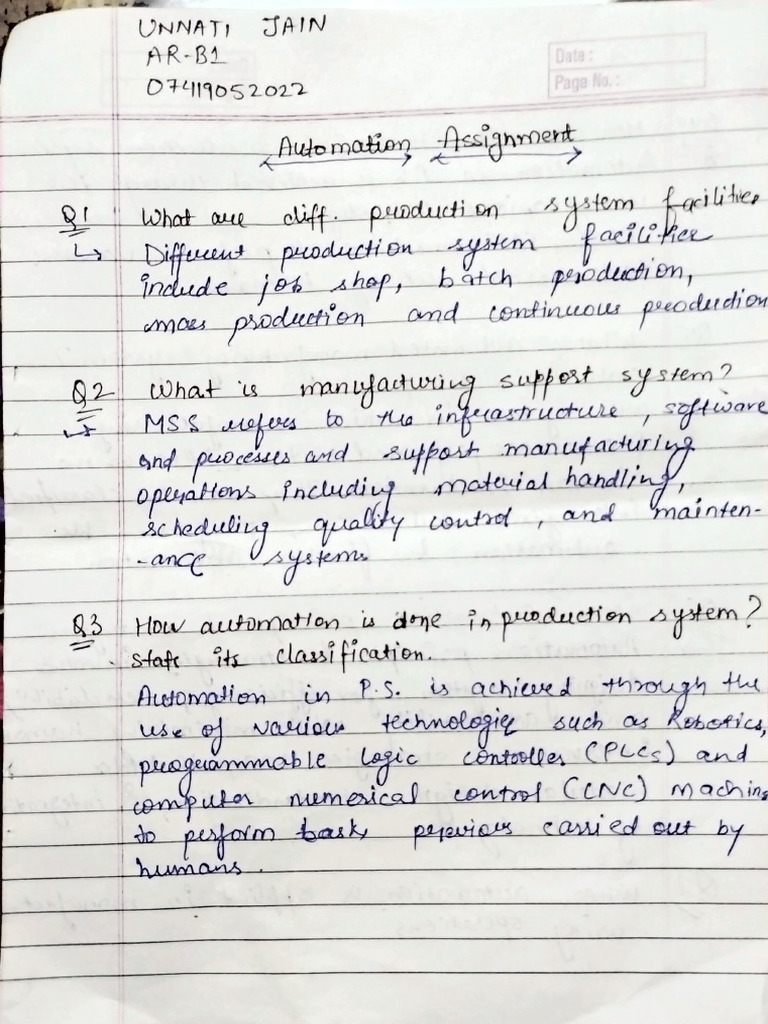 UNNATI JAIN
AR-B1
07419052022
Date :
Page No. :
Automation Assignment
Q1 What are diff. production system facilities
↳ Different production system facilities
include job shop, batch production,
mass production and continuous production
Q2 What is manufacturing support system?
↳ MSS refers to the infrastructure, software
and processes and support manufacturing
operations including material handling,
scheduling quality control, and mainten-
-ance systems.
Q3 How automation is done in production system?
state its classification.
Automation in P.S. is achieved through the
use of various technologies such as Robotics,
programmable logic controller (PLCs) and
computer numerical control (CNC) machine
to perform task previous carried out by
humans.